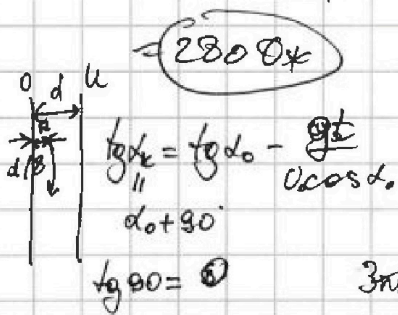 = 280 O*
O d U
d/8
tgα_k = tgα₀ - gt / v₀cosα₀
"
α₀+90°
tg 90 = 0